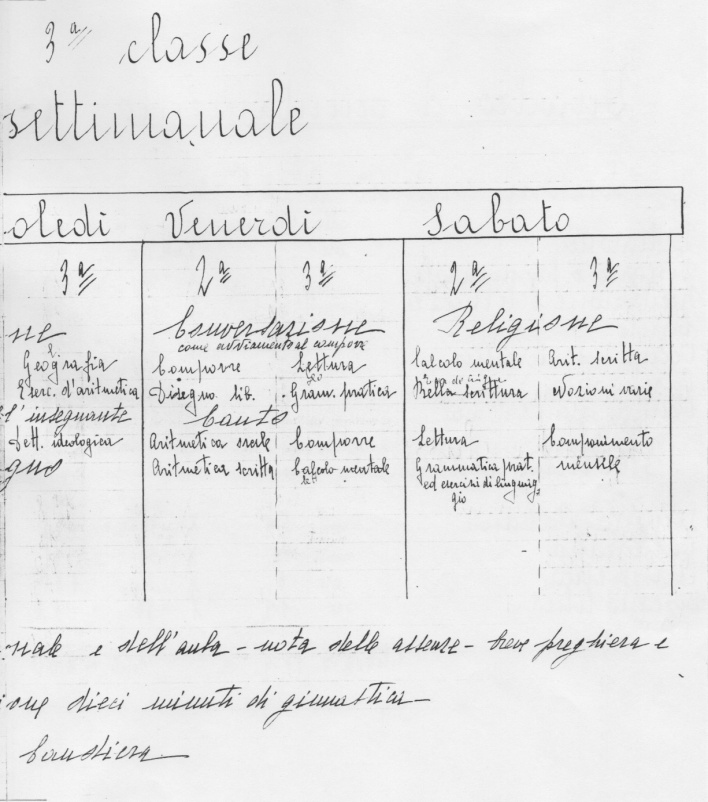 3ª classe
settimanale
oledì Venerdì Sabato
3ª 2ª 3ª 2ª 3ª
ne Conversazione Religione
come avviamento al comporre
Geografia Comporre Lettura Calcolo mentale Arit. scritta
Eserc. d'aritmetica Disegno lib. Gram. pratica Bella scrittura Nozioni varie
l'insegnante Canto
Dett. ideologica Aritmetica orale Comporre Lettura Componimento
gno Aritmetica scritta Calcolo mentale Grammatica prat. mensile
ed esercizi di linguag-
gio
nale e dell'aula - nota delle assenze - breve preghiera e
ione dieci minuti di ginnastica -
bandiera